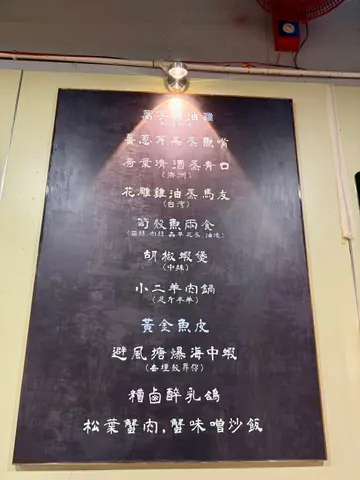 油雞
薑蔥万寿蒸魚嘴
香葉清酒蒸青口
(澳洲)
花雕雞油蒸馬友
(台灣)
筍殼魚兩食
胡椒蝦煲
(中辣)
小二羊肉鍋
(足斤半羊)
黃金魚皮
避風塘爆海中蝦
糟鹵醉乳鴿
松葉蟹肉,蟹味噌炒飯